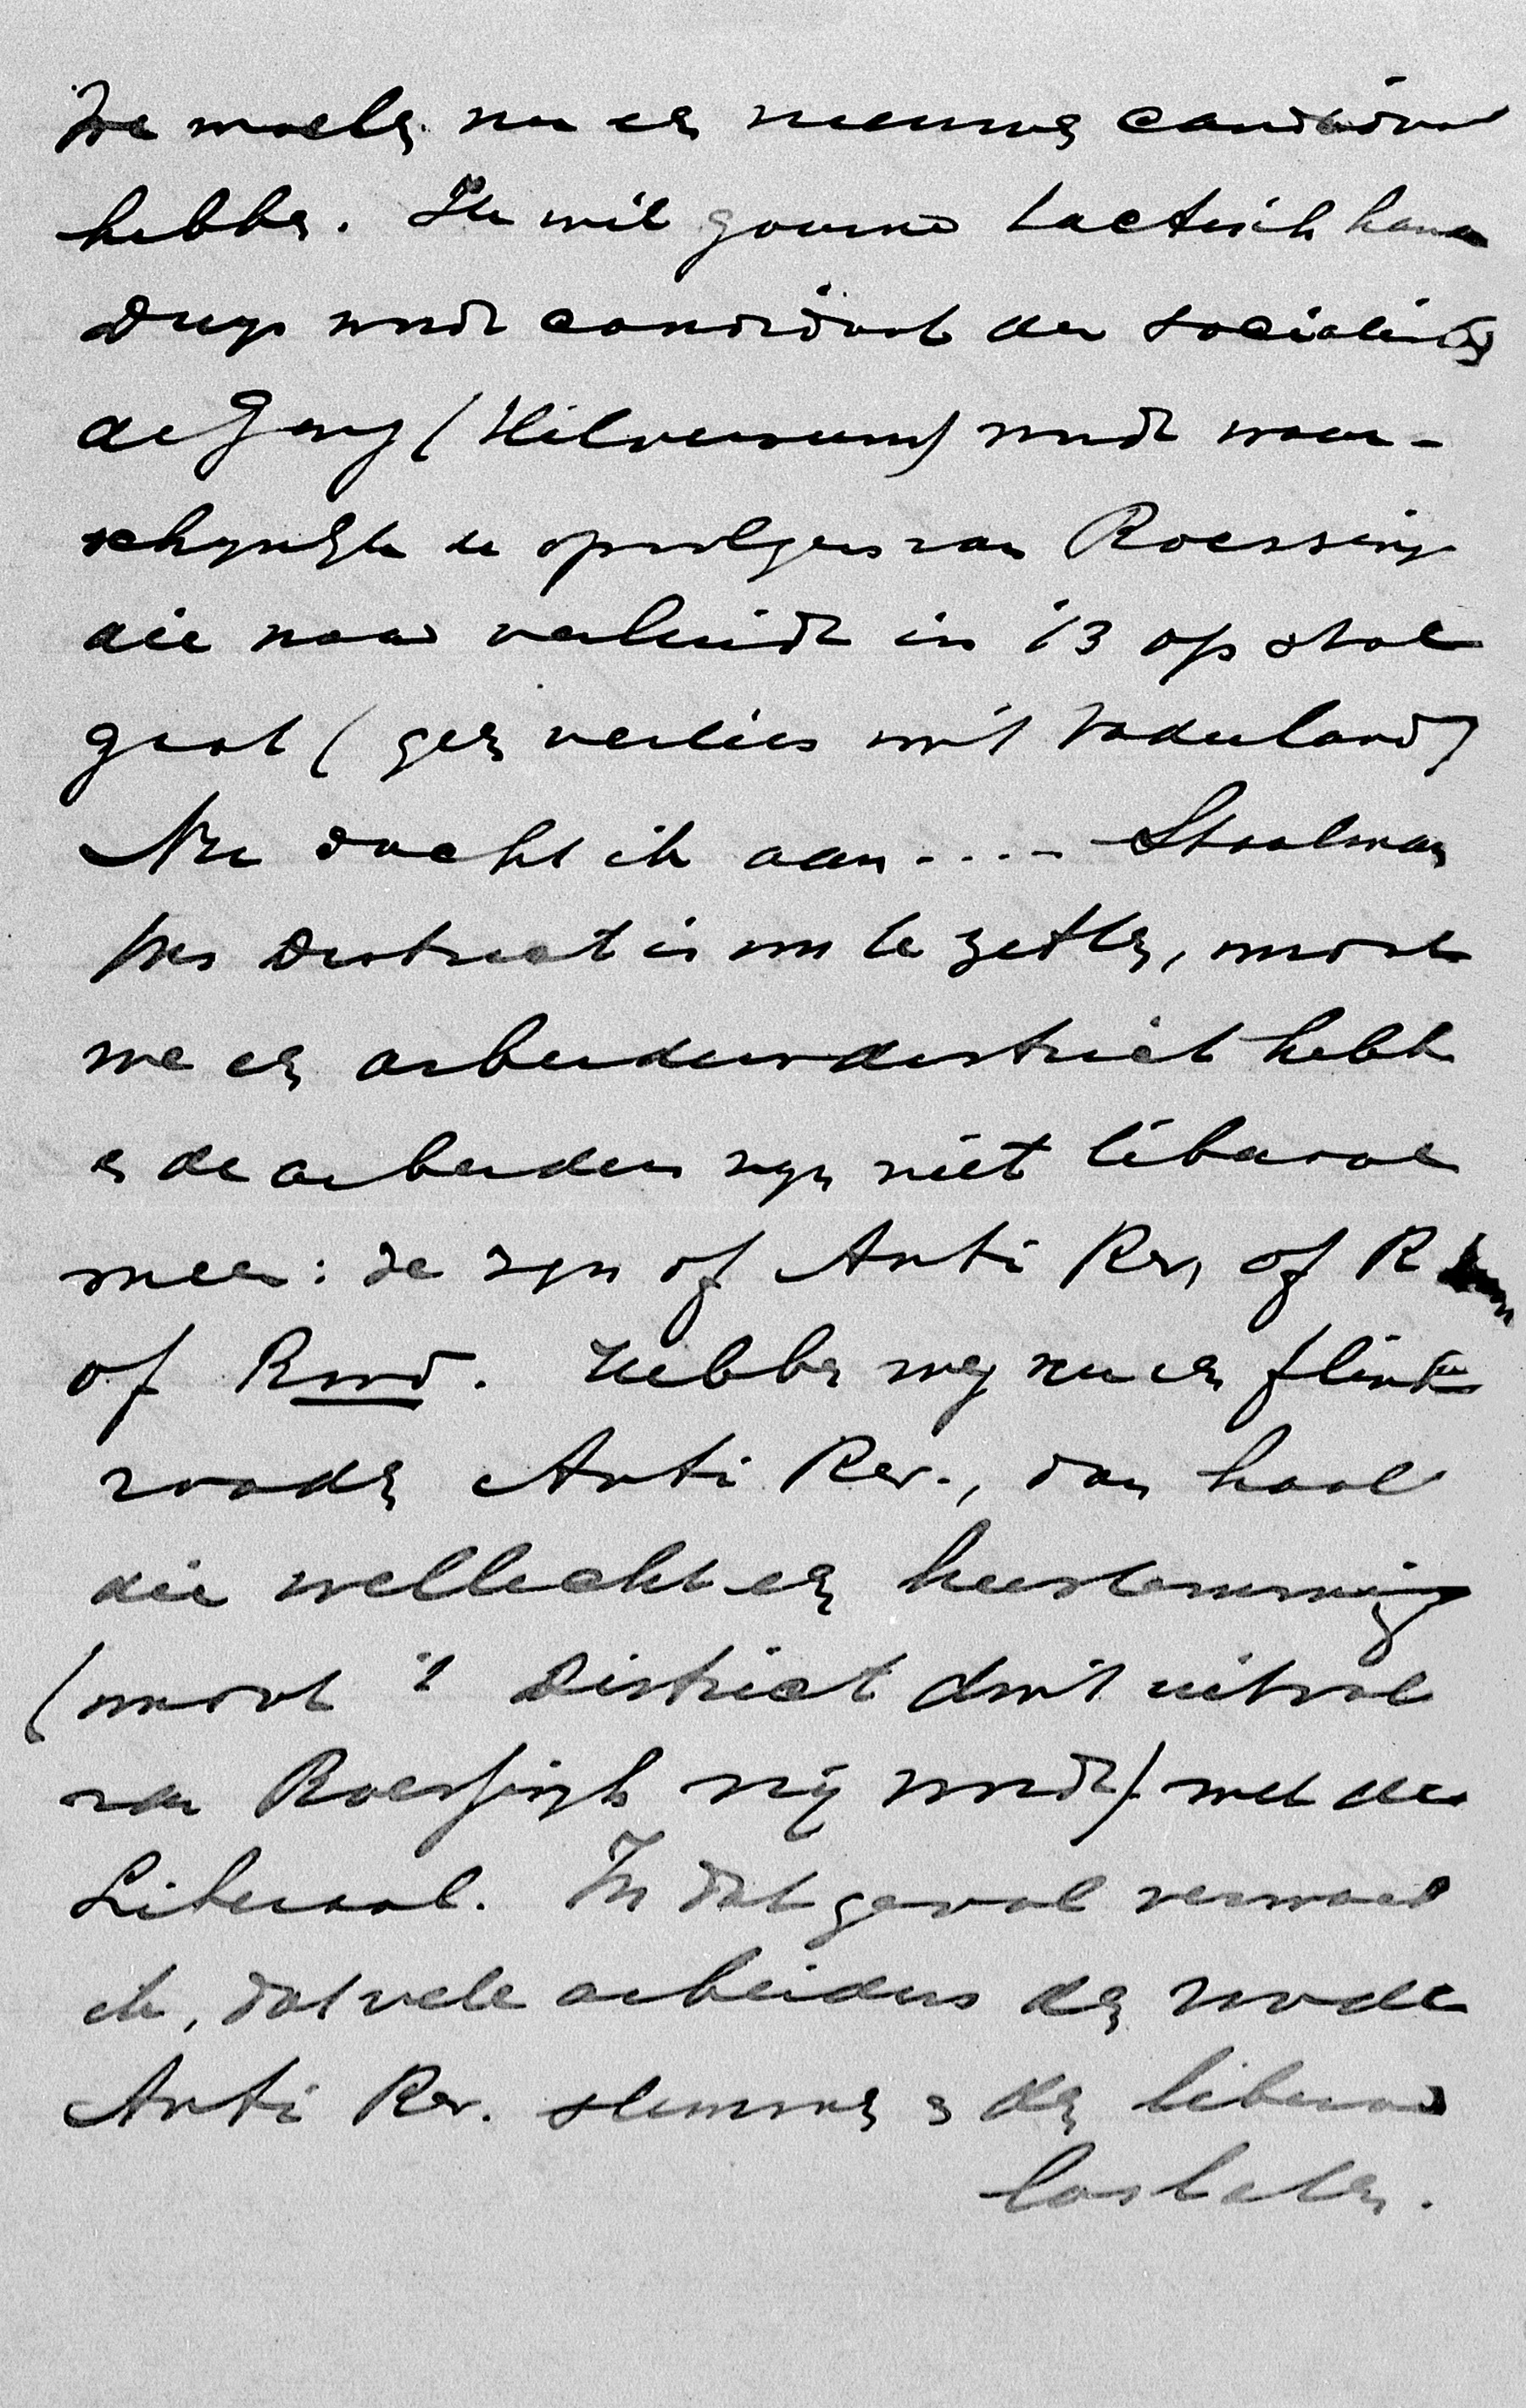 We moeten nu een nieuwen candidaat
hebben. Ik wil gaarne tactisch
Duys wordt candidaat der socialisten
de Geer (Hilversum) wordt waar-
schynlyk de opvolger van Roessing
die naar verluidt in '13 op stal
gaat (geen verlies voor 't Vaderland)
Nu dacht ik aan . . . . Staalman
Het District is om te zetten, omdat
we een arbeidersdistrict hebben
en de arbeiders zyn niet liberaal
meer: ze zyn of Anti Rev, of R
of Rood. Hebben wy nu een flinken
rooden Anti Rev., dan haalt
die wellicht een herstemming
(omdat 't District door 't uitval
van Roessingh vrij wordt) met den
Liberaal. In dat geval verwacht
ik, dat vele arbeiders den roode
Anti Rev. stemmen en den liberaal
loslaten.